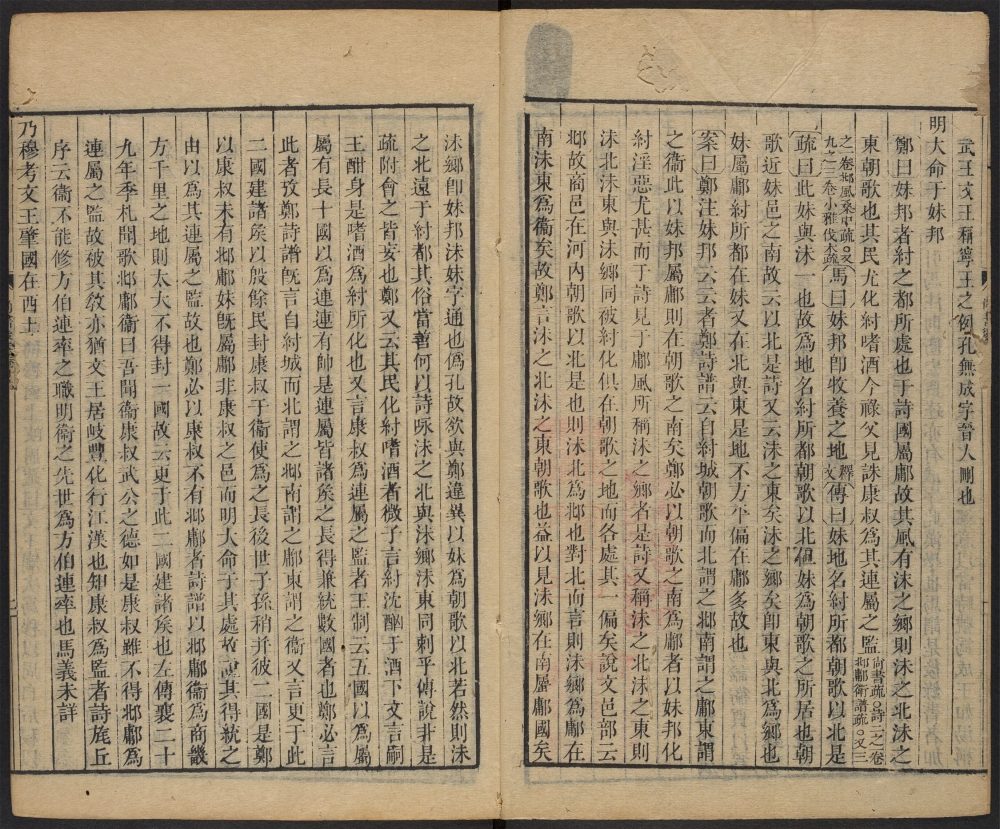 武王文王稱寧王之例孔無成字晉人刪也
明大命于妹邦
鄭曰妹邦者紂之都所處也于詩國屬鄘故其風有沬之鄉則沬之北沬之
東朝歌也其民尤化紂嗜酒今祿父見誅康叔爲其連屬之監尙書疏○詩二之一卷邶鄘衛譜疏○又三
之一卷鄘風桑中疏○又九之三卷小雅伐木疏馬曰妹邦卽牧養之地釋文傳曰妹地名紂所都朝歌以北是
疏曰此妹與沬一也故爲地名紂所都朝歌以北但妹爲朝歌之所居也朝
歌近妹邑之南故云以北是詩又云沬之東矣沬之鄉矣卽東與北爲鄉也
妹屬鄘紂所都在妹又在北與東是地不方平偏在鄘多故也
案曰鄭注妹邦云云者鄭詩譜云自紂城朝歌而北謂之邶南謂之鄘東謂
之衞此以妹邦屬鄘則在朝歌之南矣鄭必以朝歌之南爲鄘者以妹邦化
紂淫惡尤甚而于詩見于鄘風所稱沬之鄉者是詩又稱沬之北沬之東則
沬北沬東與沬鄉同被紂化俱在朝歌之地而各處其一偏矣說文邑部云
邶故商邑在河內朝歌以北是也則沬北爲邶也對北而言則沬鄉爲鄘在
南沬東爲衞矣故鄭言沬之北沬之東朝歌也益以見沬鄉在南屬鄘國矣
沬鄉卽妹邦沬妹字通也僞孔故欲與鄭違異以妹爲朝歌以北若然則沬
之北遠于紂都其俗當善何以詩咏沬之北與沬鄉沬東同刺乎傳說非是
疏附會之皆妄也鄭又云其民化紂嗜酒者微子言紂沈酗于酒下文言嗣
王酣身是嗜酒爲紂所化也又言康叔爲連屬之監者王制云五國以爲屬
屬有長十國以爲連連有帥是連屬皆諸矦之長得兼統數國者也鄭必言
此者攷鄭詩譜旣言自紂城而北謂之邶南謂之鄘東謂之衞又言更于此
二國建諸矦以殷餘民封康叔于衞使爲之長後世子孫稍并彼二國是鄭
以康叔未有邶鄘妹旣屬鄘非康叔之邑而明大命于其處故謂其得統之
由以爲其連屬之監故也鄭必以康叔不有邶鄘者詩譜以邶鄘衞爲商畿
方千里之地則太大不得封一國故云更于此二國建諸矦也左傳襄二十
九年季札聞歌邶鄘衞曰吾聞衞康叔武公之德如是康叔雖不得邶鄘爲
連屬之監故被其敎亦猶文王居岐豐化行江漢也知康叔爲監者詩旄丘
序云衞不能修方伯連率之職明衞之先世爲方伯連率也馬義未詳
乃穆考文王肇國在西土